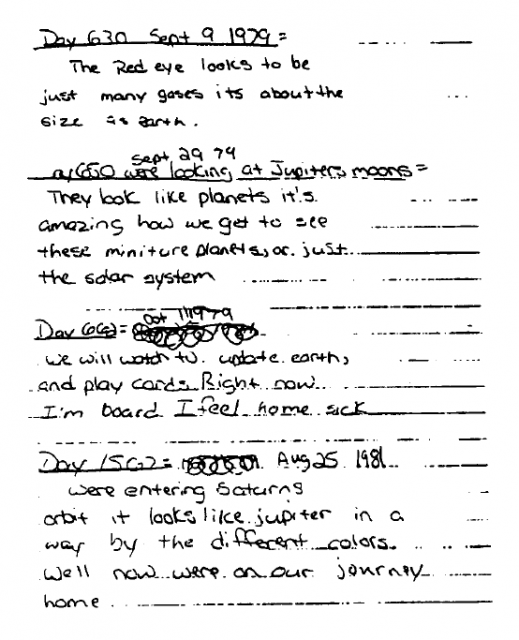 Day 630 Sept 9 1979 =
The Red eye looks to be
just many gases its about the
size as earth.
Sept 29 79
650 were looking at Jupiters moons =
They look like planets it's.
amazing how we get to see
these miniture planets, or just
the solar system
Oct 11 1979
Day 662 =
we will watch t.v. update earth,
and play cards Right now
I'm board I feel home sick
Day 1562 = Aug 25 1981
were entering Saturns
orbit it looks like jupiter in a
way by the different colors.
Well now were on our journey
home